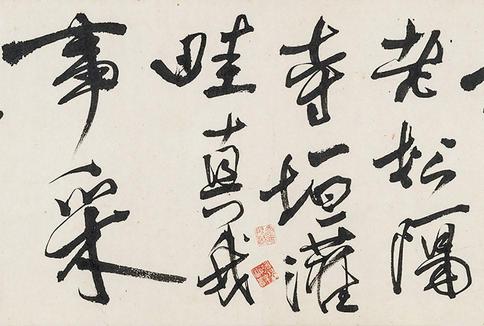 老松隔
寺垣灌
畦真我
事采